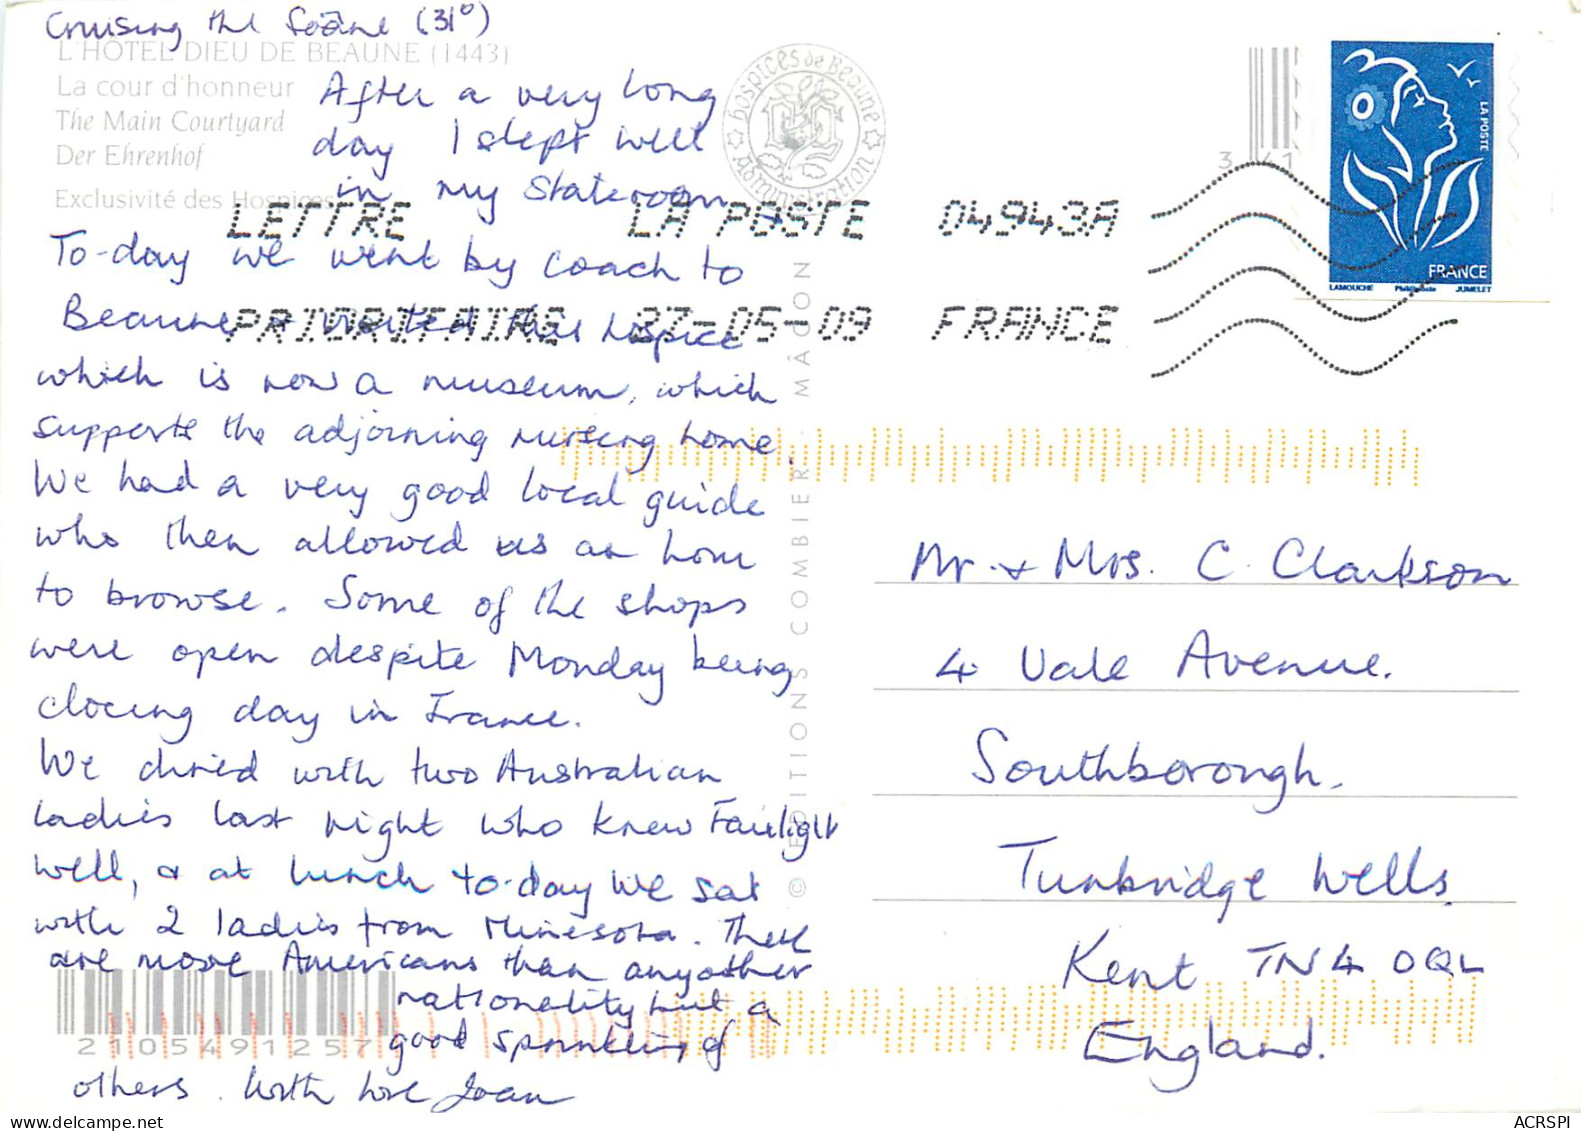 Cruising the Soâne (31°)
L'HÔTEL DIEU DE BEAUNE (1443)
La cour d'honneur
The Main Courtyard
Der Ehrenhof
Exclusivité des Hospices
After a very long
day I slept well
in my Stateroom
To-day we went by coach to
Beaune + visited this hospice
which is now a museum, which
supports the adjoining nursing home.
We had a very good local guide
who then allowed us an hour
to browse. Some of the shops
were open despite Monday being
closing day in France.
We dined with two Australian
ladies last night who knew Fairlight
well, & at lunch to-day we sat
with 2 ladies from Minesota. There
are more Americans than anyother
nationality but a
good sprinkling of
others. With love Joan
Hospices de Beaune
Administration
LETTRE LA POSTE 04943A
PRIORITAIRE 27-05-09 FRANCE
LA POSTE
FRANCE
LAMOUCHE Phil@poste JUMELET
© EDITIONS COMBIER MÂCON
Mr. + Mrs. C. Clarkson
4 Vale Avenue.
Southborough.
Tunbridge Wells.
Kent TN4 0QL
England.
2105491257
ACRSPI